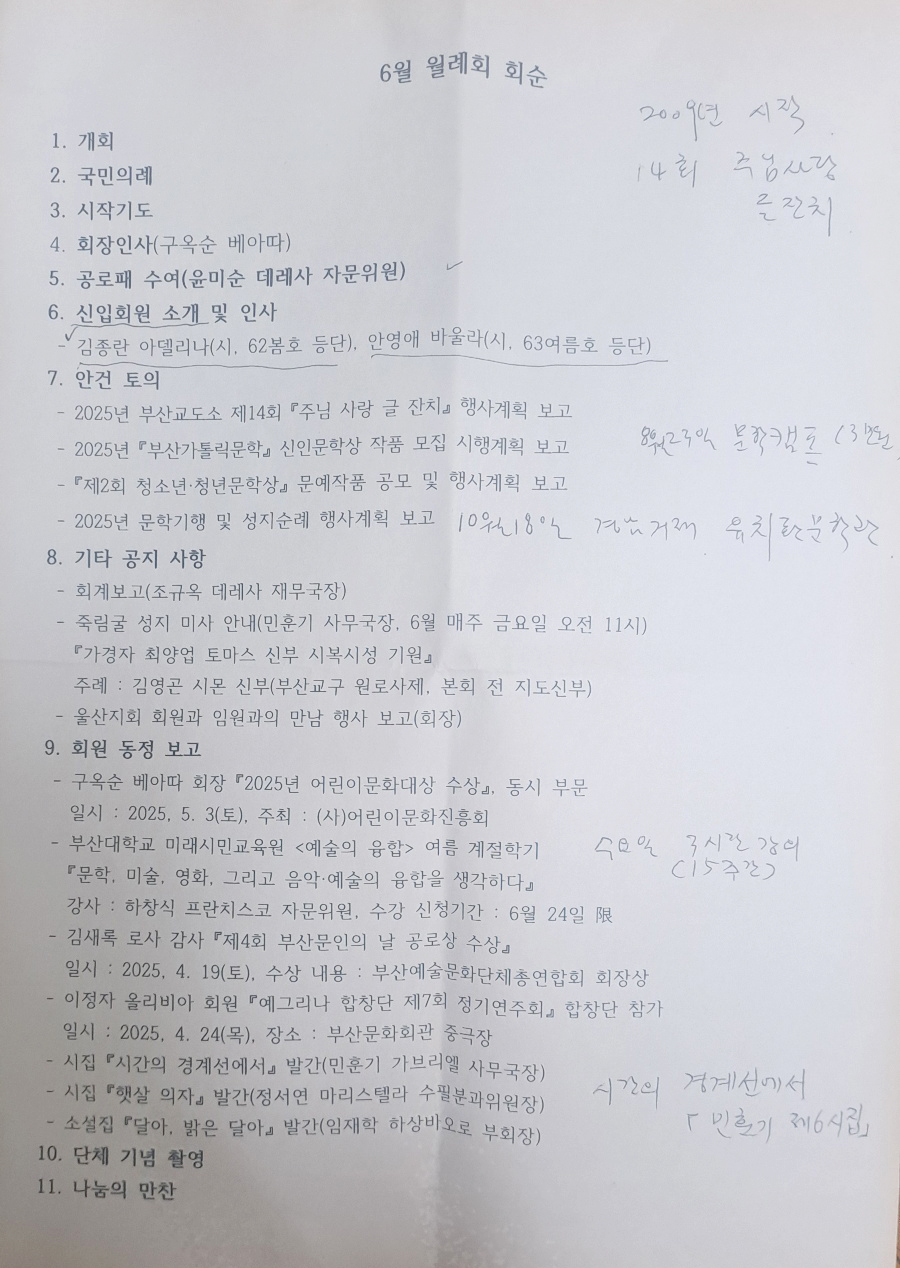 6월 월례회 회순
2009년 시작
14회 주님사랑
글잔치
1. 개회
2. 국민의례
3. 시작기도
4. 회장인사(구옥순 베아따)
5. 공로패 수여(윤미순 데레사 자문위원)
6. 신입회원 소개 및 인사
- 김종란 아델리나(시, 62봄호 등단), 안영애 바울라(시, 63여름호 등단)
7. 안건 토의
- 2025년 부산교도소 제14회 『주님 사랑 글 잔치』 행사계획 보고
- 2025년 『부산가톨릭문학』 신인문학상 작품 모집 시행계획 보고 8월23일 문학캠프
- 『제2회 청소년·청년문학상』 문예작품 공모 및 행사계획 보고
- 2025년 문학기행 및 성지순례 행사계획 보고 10월18일 경남거제 유치환문학관
8. 기타 공지 사항
- 회계보고(조규옥 데레사 재무국장)
- 죽림굴 성지 미사 안내(민훈기 사무국장, 6월 매주 금요일 오전 11시)
『가경자 최양업 토마스 신부 시복시성 기원』
주례 : 김영곤 시몬 신부(부산교구 원로사제, 본회 전 지도신부)
- 울산지회 회원과 임원과의 만남 행사 보고(회장)
9. 회원 동정 보고
- 구옥순 베아따 회장 『2025년 어린이문화대상 수상』, 동시 부문
일시 : 2025, 5. 3(토), 주최 : (사)어린이문화진흥회
- 부산대학교 미래시민교육원 <예술의 융합> 여름 계절학기 수요일 3시간 강의
(15주간)
『문학, 미술, 영화, 그리고 음악·예술의 융합을 생각하다』
강사 : 하창식 프란치스코 자문위원, 수강 신청기간 : 6월 24일 限
- 김새록 로사 감사 『제4회 부산문인의 날 공로상 수상』
일시 : 2025, 4. 19(토), 수상 내용 : 부산예술문화단체총연합회 회장상
- 이정자 올리비아 회원 『예그리나 합창단 제7회 정기연주회』 합창단 참가
일시 : 2025, 4. 24(목), 장소 : 부산문화회관 중극장
- 시집 『시간의 경계선에서』 발간(민훈기 가브리엘 사무국장)
- 시집 『햇살 의자』 발간(정서연 마리스텔라 수필분과위원장) 시간의 경계선에서
- 소설집 『달아, 밝은 달아』 발간(임재학 하상바오로 부회장) 「민훈기 제6시집」
10. 단체 기념 촬영
11. 나눔의 만찬